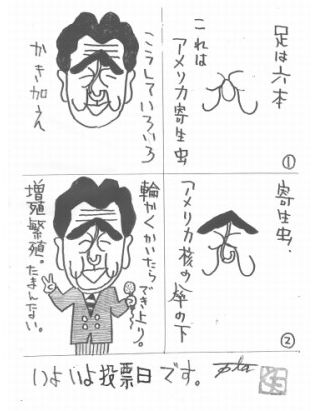 足は六本
これは
アメリカ寄生虫
①
こうしていろいろ
かき加え
寄生虫、
アメリカ核の傘の下
②
輪かくかいたらでき上り。
増殖繁殖。たまんない。
いよいよ投票日です。